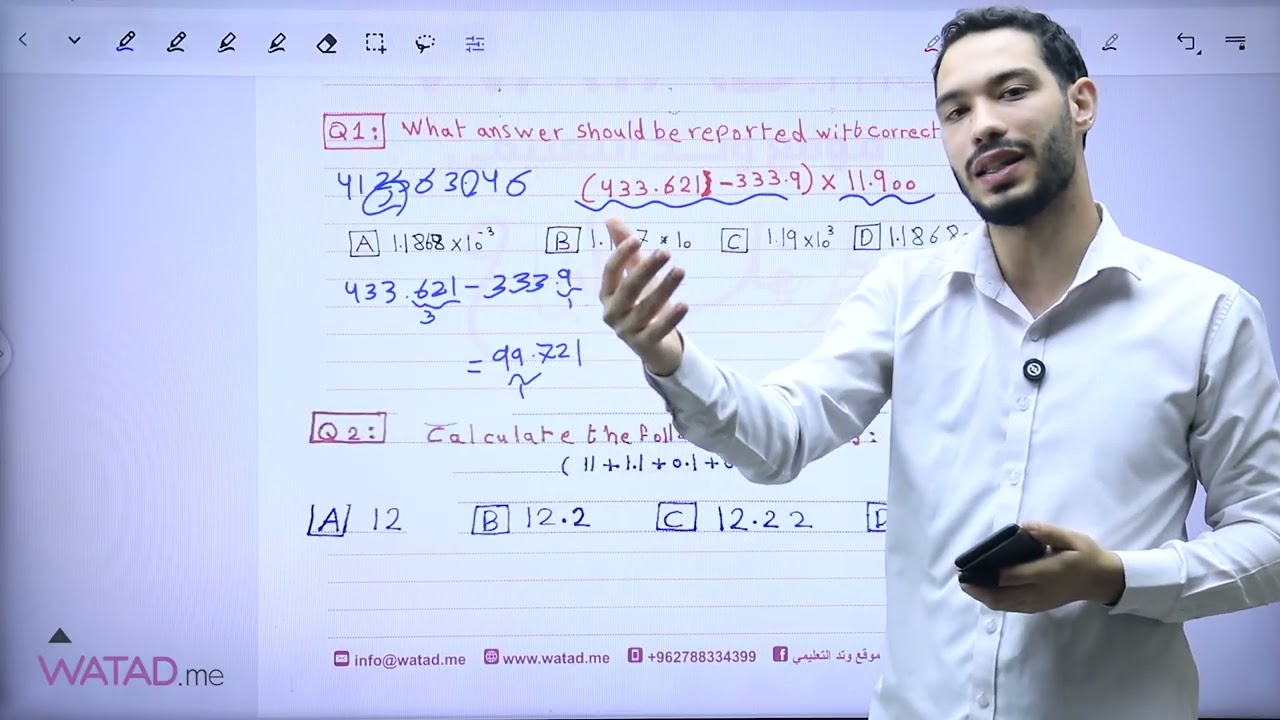 Q1: What answer should be reported with correct
41 63046 (433.621 - 333.9) × 11.900
A 1.1868 ×10⁻³ B 1. 7 × 10 C 1.19 ×10³ D 1.1868
433.621 - 333.9
3 1
= 99.721
Q2: Calculate the foll :
( 11 + 1.1 + 0.1 + 0
A 12 B 12.2 C 12.22 D
info@watad.me www.watad.me +962788334399 موقع وتد التعليمي
WATAD.me